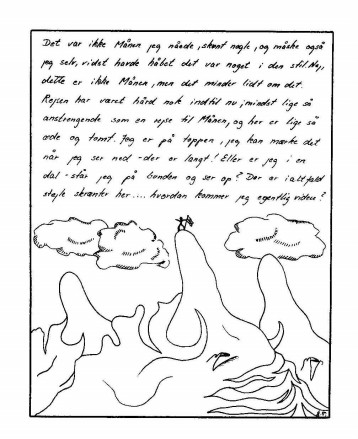 Det var ikke Månen jeg nåede, skønt nogle, og måske også
jeg selv, vidst havde håbet det var noget i den stil. Nej,
dette er ikke Månen, men det minder lidt om det.
Rejsen har været hård nok indtil nu, mindst lige så
anstrengende som en rejse til Månen, og her er lige så
øde og tomt. Jeg er på toppen, jeg kan mærke det
når jeg ser ned - der er langt! Eller er jeg i en
dal - står jeg på bunden og ser op? Der er i alt fald
stejle skrænter her.... hvordan kommer jeg egentlig videre?